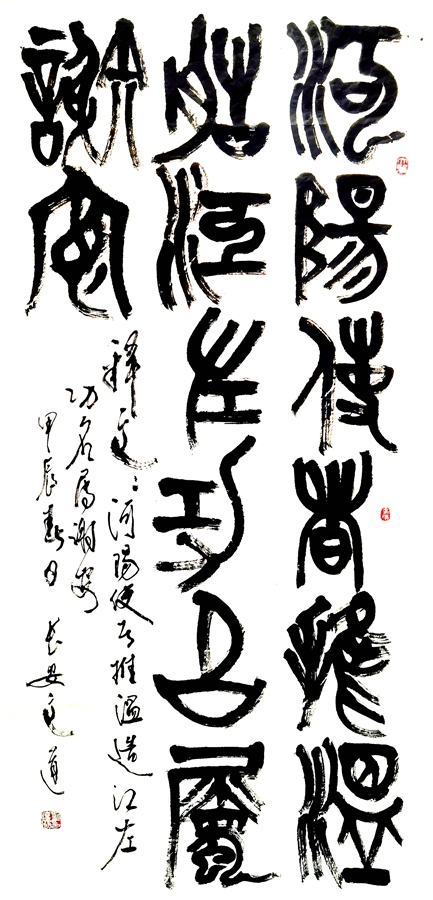 河陽使者推溫
造江左功名屬
謝安
釋文：河陽使者推溫造江左
功名屬謝安
甲辰春月 長安文道